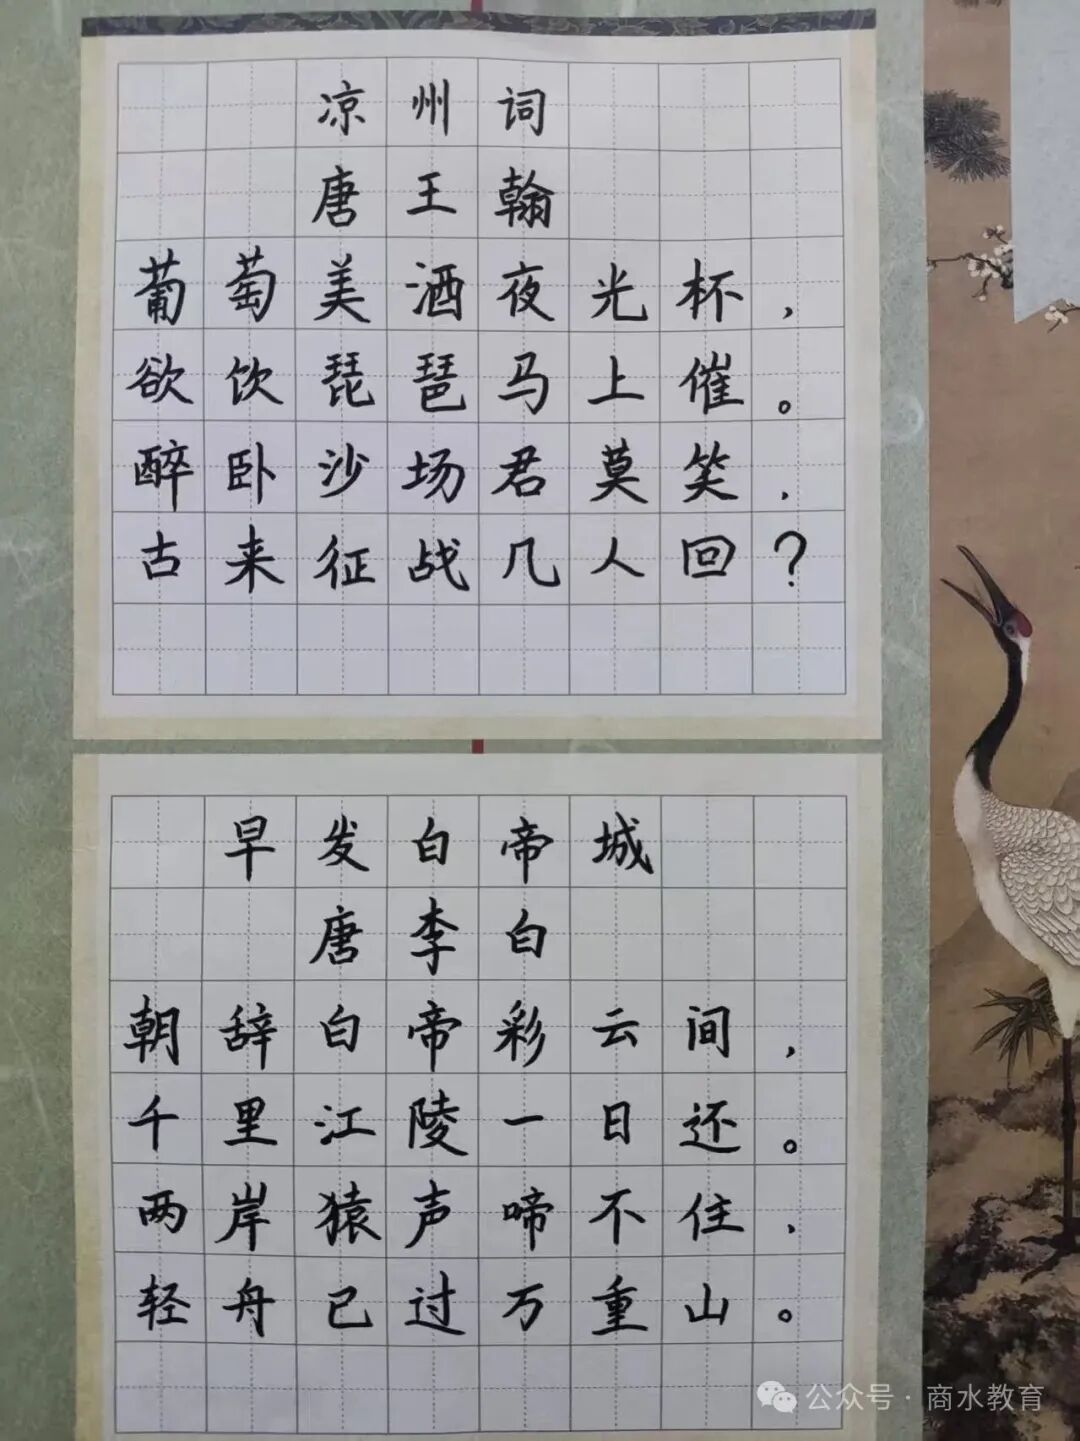 凉州词
唐王翰
葡萄美酒夜光杯，
欲饮琵琶马上催。
醉卧沙场君莫笑，
古来征战几人回？
早发白帝城
唐李白
朝辞白帝彩云间，
千里江陵一日还。
两岸猿声啼不住，
轻舟已过万重山。
公众号·商水教育